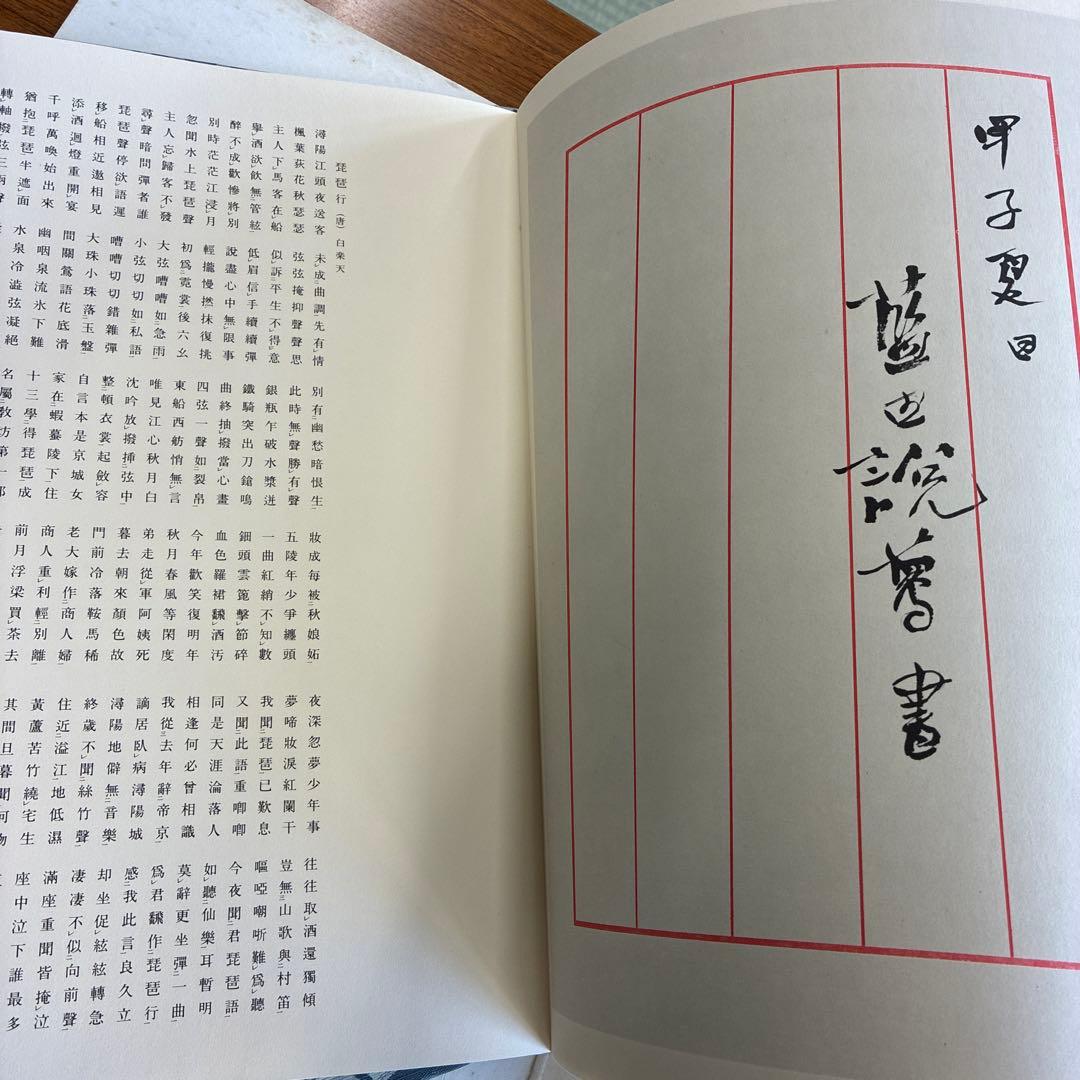 甲子夏日
書
琵琶行(唐)白楽天
潯陽江頭夜送客
楓葉荻花秋瑟瑟
主人下馬客在船
擧酒欲飲無管絃
醉不成歡慘將別
別時茫茫江浸月
忽聞水上琵琶聲
主人忘歸客不發
尋聲暗問彈者誰
琵琶聲停欲語遲
移船相近邀相見
添酒迴燈重開宴
千呼萬喚始出來
猶抱琵琶半遮面
轉軸撥弦三兩聲
未成曲調先有情
弦弦掩抑聲聲思
似訴平生不得意
低眉信手續續彈
說盡心中無限事
輕攏慢撚抹復挑
初爲霓裳後六幺
大弦嘈嘈如急雨
小弦切切如私語
嘈嘈切切錯雜彈
大珠小珠落玉盤
間關鶯語花底滑
幽咽泉流氷下難
水泉冷澁弦凝絶
別有幽愁暗恨生
此時無聲勝有聲
銀瓶乍破水漿迸
鐵騎突出刀鎗鳴
曲終抽撥當心畫
四弦一聲如裂帛
東船西舫悄無言
唯見江心秋月白
沈吟放撥挿弦中
整頓衣裳起斂容
自言本是京城女
家在蝦蟇陵下住
十三學得琵琶成
名屬教坊第一部
妝成每被秋娘妬
五陵年少爭纏頭
一曲紅綃不知數
鈿頭雲篦擊節碎
血色羅裙飜酒汚
今年歡笑復明年
秋月春風等閑度
弟走從軍阿姨死
暮去朝來顏色故
門前冷落鞍馬稀
老大嫁作商人婦
商人重利輕別離
前月浮梁買茶去
夜深忽夢少年事
夢啼妝淚紅闌干
我聞琵琶已歎息
又聞此語重喞喞
同是天涯淪落人
相逢何必曾相識
我從去年辭帝京
謫居臥病潯陽城
潯陽地僻無音樂
終歲不聞絲竹聲
住近湓江地低濕
黃蘆苦竹繞宅生
其間旦暮聞何物
往往取酒還獨傾
豈無山歌與村笛
嘔啞嘲哳難爲聽
今夜聞君琵琶語
如聽仙樂耳暫明
莫辭更坐彈一曲
爲君飜作琵琶行
感我此言良久立
却坐促絃絃轉急
凄凄不似向前聲
滿座重聞皆掩泣
座中泣下誰最多